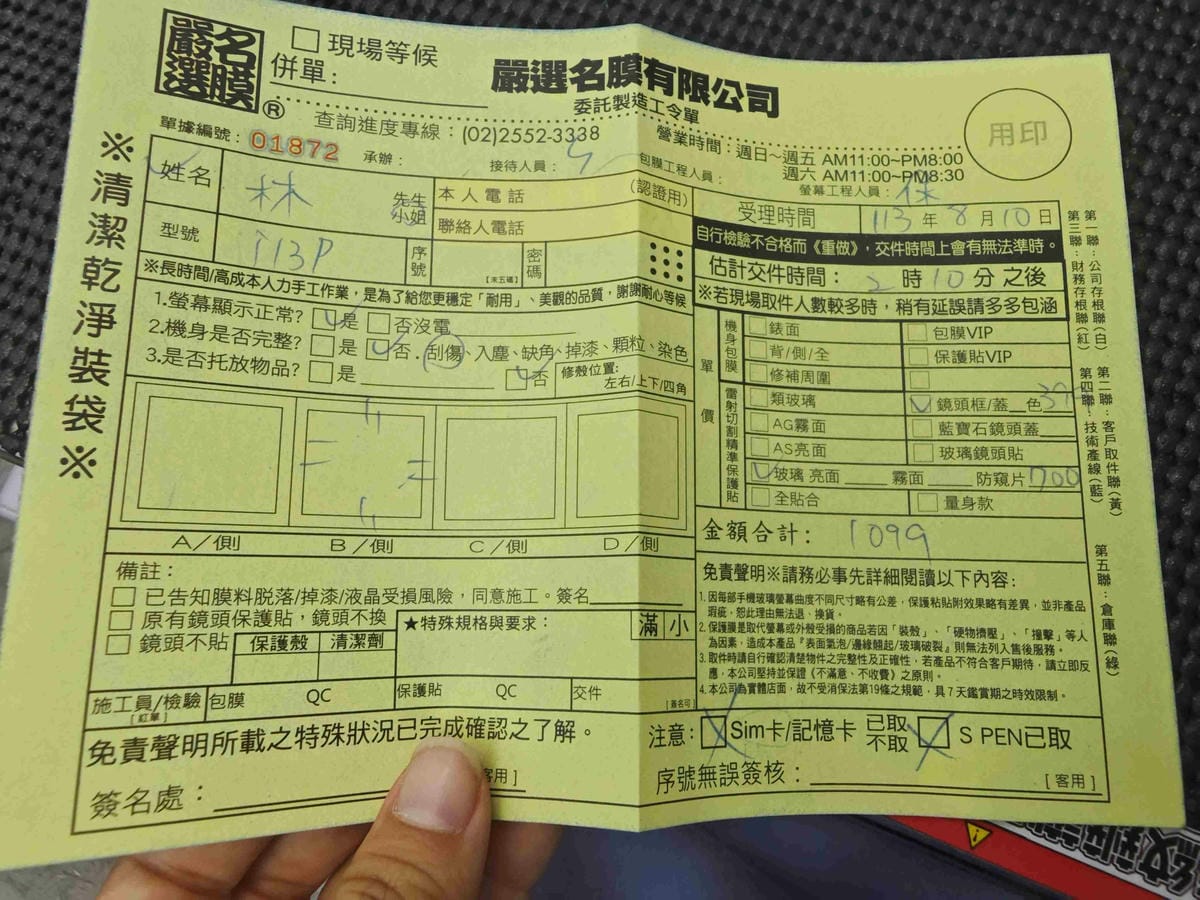 嚴選名膜®
□現場等候
併單：
嚴選名膜有限公司
委託製造工令單
查詢進度專線：(02)2552-3338
營業時間：週日～週五 AM11:00~PM8:00
週六 AM11:00~PM8:30
用印
單據編號：01872 承辦： 接待人員： 包膜工程人員： 螢幕工程人員：
※清潔乾淨裝袋※
姓名 林 先生 小姐 本人電話 (認證用)
聯絡人電話
型號 i13P 序號 [末五碼] 密碼
受理時間 113年8月10日
自行檢驗不合格而《重做》，交件時間上會有無法準時。
估計交件時間：2時10分 之後
※若現場取件人數較多時，稍有延誤請多多包涵
※長時間/高成本人力手工作業，是為了給您更穩定「耐用」、美觀的品質，謝謝耐心等候
1.螢幕顯示正常? □是 □否沒電
2.機身是否完整? □是 □否．刮傷、入塵、缺角、掉漆、顆粒、染色
3.是否托放物品? □是 □否
修殼位置：
左右/上下/四角
A/側 B/側 C/側 D/側
單價
機身包膜
□錶面 □包膜VIP
□背/側/全 □保護貼VIP
□修補周圍 □
雷射切割精準保護貼
□類玻璃 □鏡頭框/蓋 色
□AG霧面 □藍寶石鏡頭蓋
□AS亮面 □玻璃鏡頭貼
□玻璃 亮面 霧面 防窺片 700
□全貼合 □量身款
金額合計： 1099
備註：
□已告知膜料脫落/掉漆/液晶受損風險，同意施工。簽名
□原有鏡頭保護貼，鏡頭不換
□鏡頭不貼 保護殼 清潔劑
★特殊規格與要求： 滿 小
施工員/檢驗 [紅單] 包膜 QC 保護貼 QC 交件 [簽名可]
免責聲明※請務必事先詳細閱讀以下內容：
1.因每部手機玻璃螢幕曲度不同尺寸略有公差，保護粘貼附效果略有差異，並非產品
瑕疵，恕此理由無法退、換貨。
2.保護膜是取代螢幕或外殼受損的商品若因「裝殼」、「硬物擠壓」、「撞擊」等人
為因素，造成本產品『表面氣泡/邊緣翹起/玻璃破裂』則無法列入售後服務。
3.取件時請自行確認清楚物件之完整性及正確性，若產品不符合客戶期待，請立即反
應，本公司堅持並保證《不滿意、不收費》之原則。
4.本公司為實體店面，故不受消保法第19條之規範，具7天鑑賞期之時效限制。
免責聲明所載之特殊狀況已完成確認之了解。
簽名處： 客用]
注意：□Sim卡/記憶卡 已取 不取 □S PEN已取
序號無誤簽核： [客用]
第一聯：公司存根聯(白)
第二聯：客戶取件聯(黃)
第三聯：財務存根聯(紅)
第四聯：技術產線(藍)
第五聯：倉庫聯(綠)